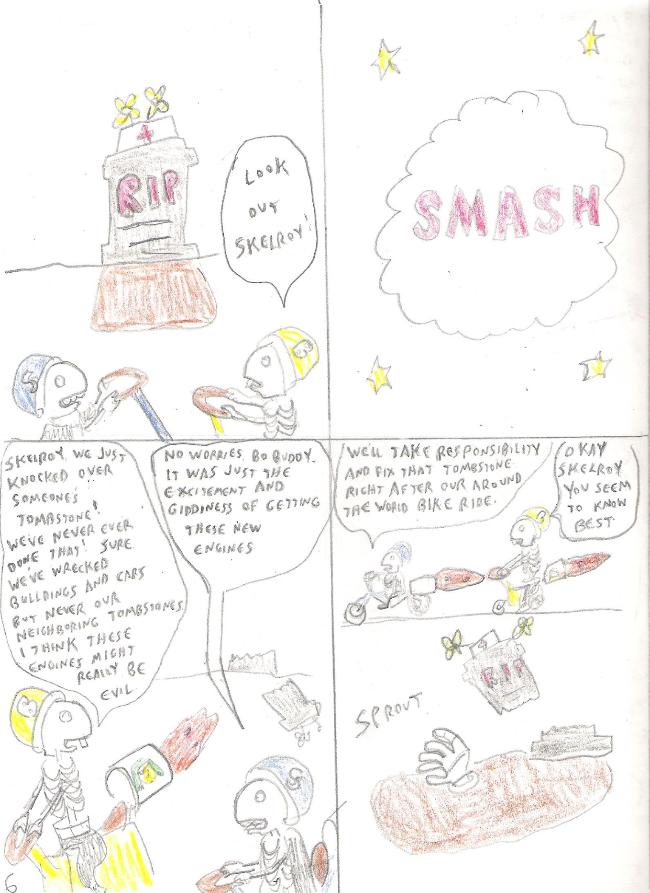 RIP
LOOK
OUT
SKELROY!
SMASH
SKELROY, WE JUST
KNOCKED OVER
SOMEONES
TOMBSTONE!
WE'VE NEVER EVER
DONE THAT! SURE
WE'VE WRECKED
BUILDINGS AND CARS
BUT NEVER OUR
NEIGHBORING TOMBSTONES.
I THINK THESE
ENGINES MIGHT
REALLY BE
EVIL
NO WORRIES BO BUDDY.
IT WAS JUST THE
EXCITEMENT AND
GIDDINESS OF GETTING
THESE NEW
ENGINES
WE'LL TAKE RESPONSIBILITY
AND FIX THAT TOMBSTONE
RIGHT AFTER OUR AROUND
THE WORLD BIKE RIDE.
OKAY
SKELROY
YOU SEEM
TO KNOW
BEST
RIP
SPROUT
6